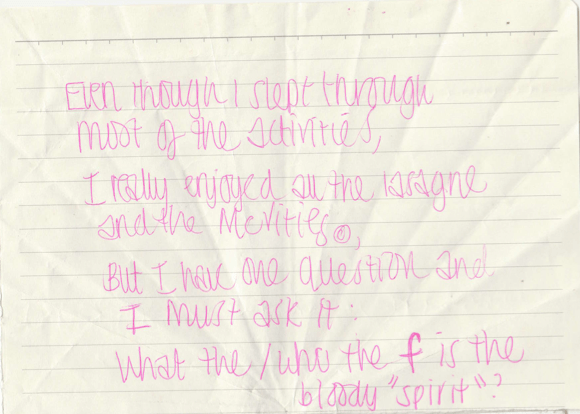 Even though I slept through
most of the activities,
I really enjoyed all the lasagne
and the McVities©,
But I have one question and
I must ask it:
What the/who the f is the
bloody "spirit"?